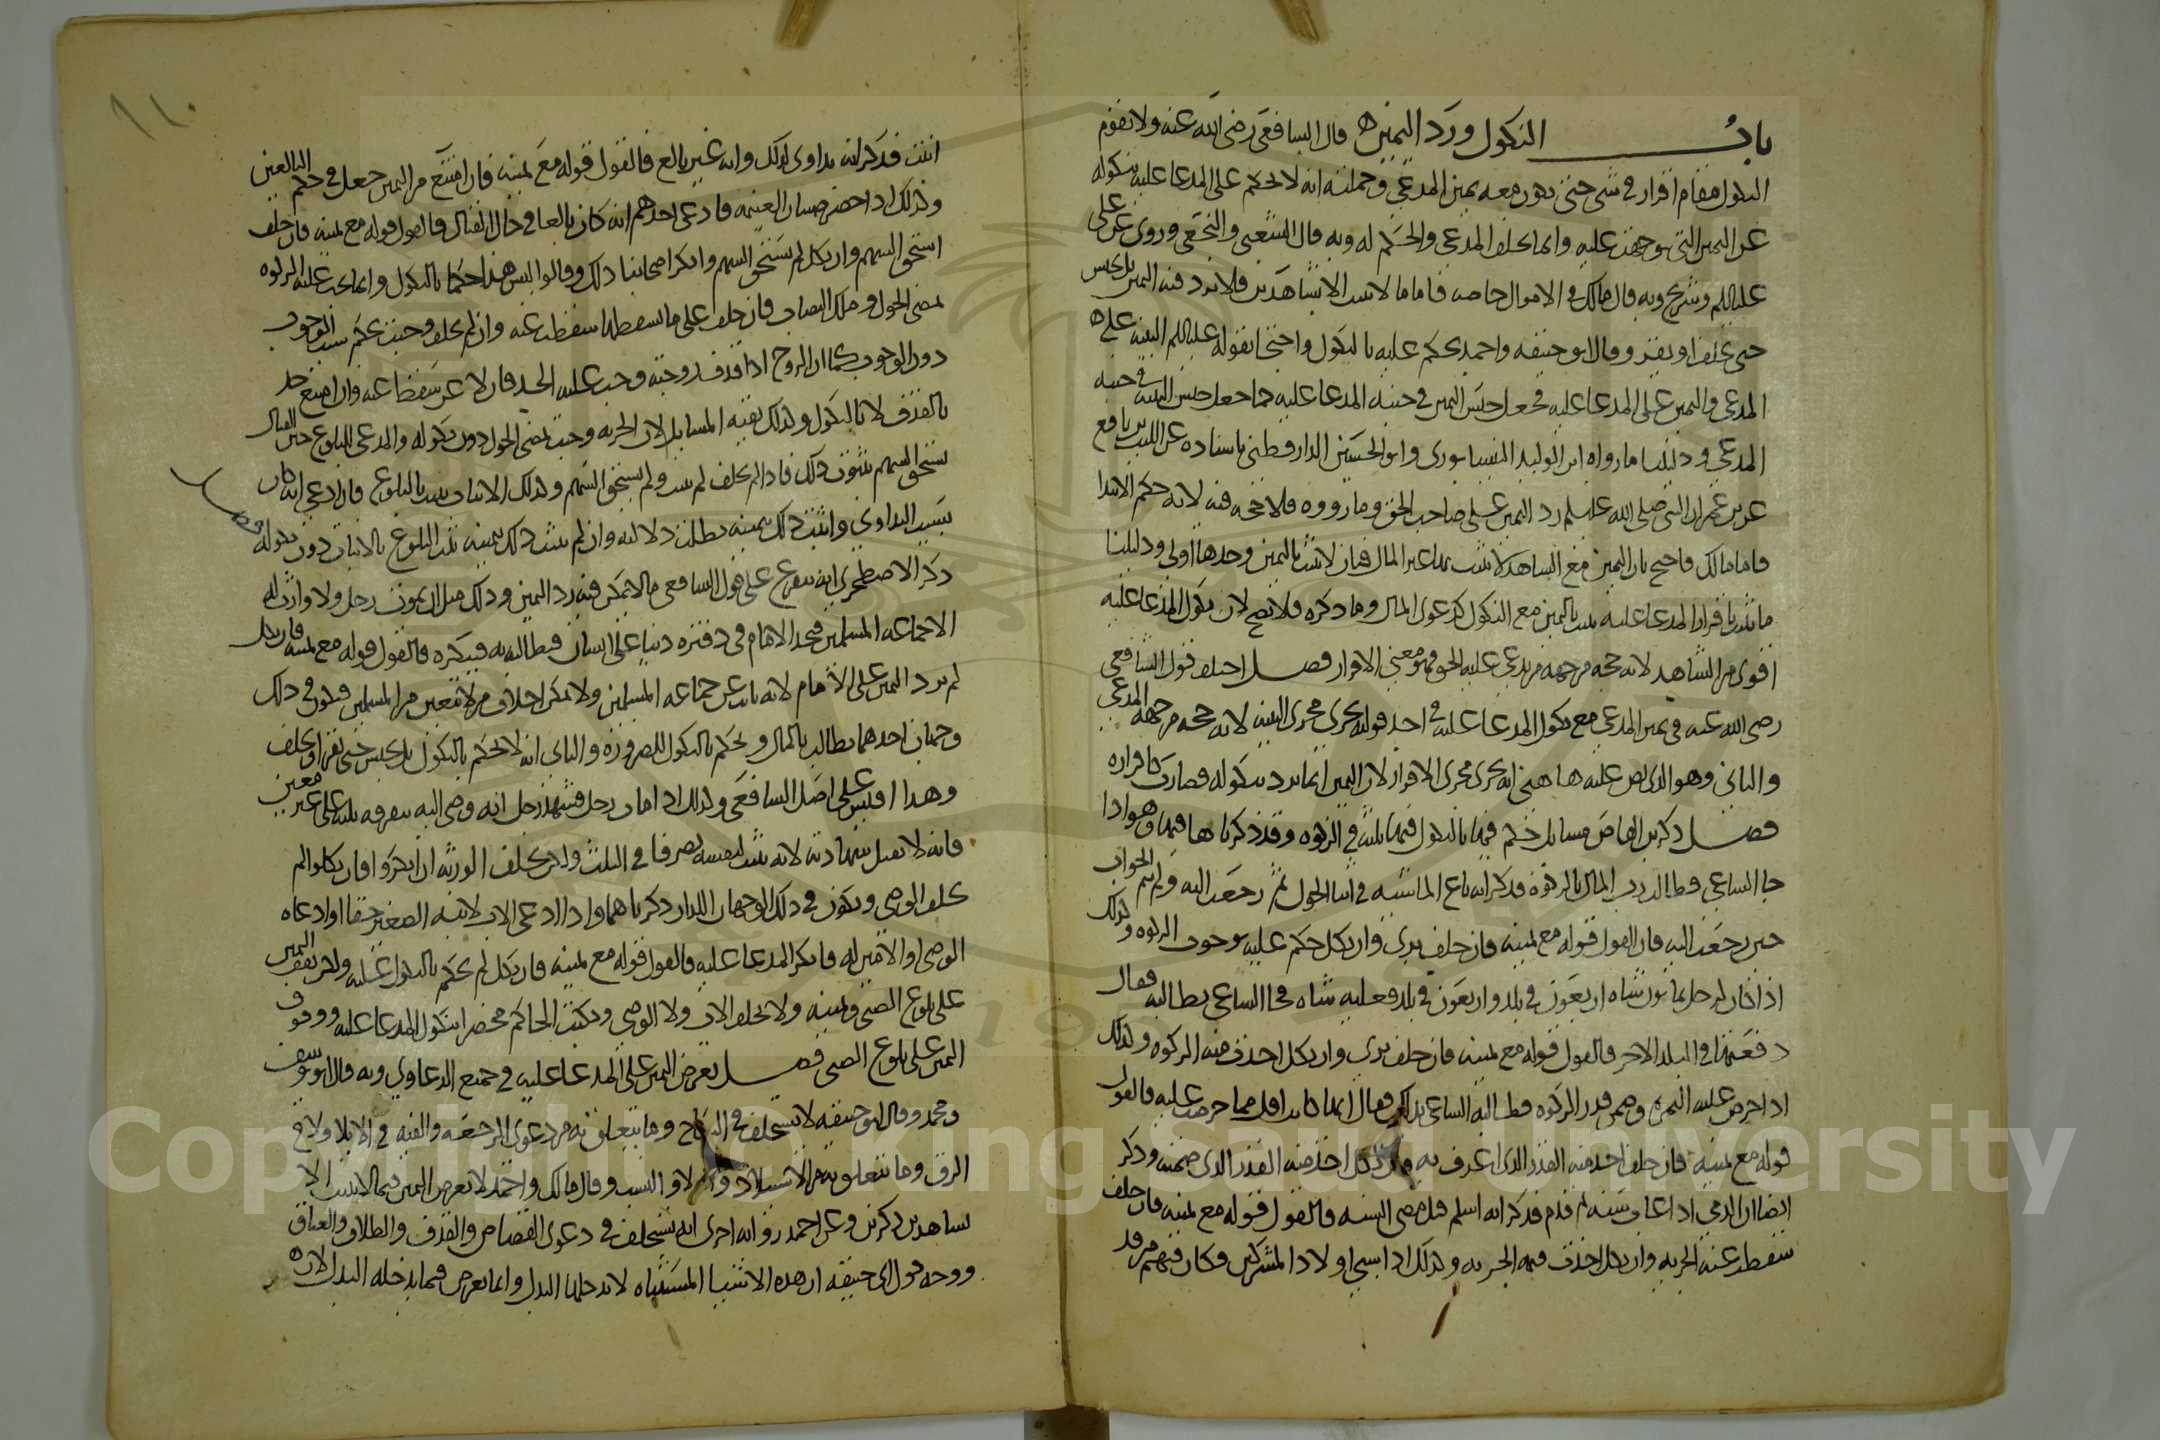 باب النكول ورد اليمين ه قال الشافعي رضي الله عنه ولا تقوم
النكول مقام اقرار في شي حتى يكون معه يمين المدعي وجملته انه لا يحكم على المدعا عليه بنكوله
عن اليمين التي توجهت عليه وانما يحلف المدعي والحكم له وبه قال الشعبي والنخعي وروى عن علي
عليه السلم وشريح وبه قال مالك في الاموال خاصه فاما ما لا يثبت الا بشاهدين فلا ترد فيه اليمين بل يحبس
حتى يحلف او يقر وقال ابو حنيفه واحمد يحكم عليه بالنكول واحتجا بقوله عليه السلم البينة على ه
المدعي واليمين على المدعا عليه فجعل جنس اليمين في جنبه المدعا عليه كما جعل جنس البينه في جنبه
المدعي ودليلنا ما رواه ابو الوليد النيسابوري وابو الحسين الدارقطني باسناده عن الليث بن نافع
عن بن عمر ان النبي صلى الله عليه وسلم رد اليمين على صاحب الحق وما رووه فلا حجه فيه لانه حكم الابتدا
فاما مالك فاحتج بان اليمين مع الشاهد لا يثبت بها غير المال فبان لا يثبت باليمين وحدها اولى ودليلنا
ما ثبت باقرار المدعا عليه ثبت باليمين مع النكول كدعوى المال وما ذكره فلا يصح لان نكول المدعا عليه
اقوى من الشاهد لانه حجه من جهه من يدعي عليه الحق فهو معنى الاقرار فصل اختلف قول الشافعي
رضي الله عنه في يمين المدعي مع نكول المدعا عليه في احد قوليه يجري مجرى البينه لانه حجه من جهه المدعي
والثاني وهو الذي نص عليه هاهنا انه يجري مجرى الاقرار لان اليمين انما ترد بنكوله فصارت كاقراره
فصل ذكر بن القاص مسايل حكم فيها بالنكول فمنها ثلثه في الزكوه وقد ذكرناها فمنها وهو اذا
جا الساعي فطالب رب المال بالزكوه فذكر انه باع الماشيه في اثنا الحول ثم رجعت اليه ولم يتم الحول
حين رجعت اليه فان القول قوله مع يمينه فان حلف بري وان نكل حكم عليه بوجوب الزكوه وكذلك
اذا كان لرجل ثمانون شاه اربعون في بلد واربعون في بلد فعليه شاه فجا الساعي يطالبه فقال
دفعتها في البلد الاخر فالقول قوله مع يمينه فان حلف بري وان نكل اخذت منه الزكوه وكذلك
اذا خرص عليه الثمره وضمن قدر الزكوه فطالبه الساعي بذلك فقال انما كانت اقل مما خرصت عليه فالقول
قوله مع يمينه فان حلف اخذ منه القدر الذي اعترف به وان نكل اخذ منه القدر الذي ضمنه وذكر
ايضا ان الذمي اذا غاب سنه ثم قدم فذكر انه اسلم قبل مضي السنه فالقول قوله مع يمينه فان حلف
سقطت عنه الجزيه وان نكل اخذت منه الجزيه وكذلك اذا سبي اولاد المشركين وكان فيهم من قد
انبت فذكر انه تداوى لذلك وانه غير بالغ فالقول قوله مع يمينه فان امتنع من اليمين جعل في حكم البالغين
وكذلك اذا حضر صبيان الغنيمه فادعى احدهم انه كان بالغا في حال القتال فالقول قوله مع يمينه فان حلف
استحق السهم وان نكل لم يستحق السهم وانكر اصحابنا ذلك وقالوا ليس هذا حكما بالنكول وانما يجب عليه الزكوه
بمضي الحول وملك النصاب فان حلف على ما يسقطها سقطت عنه وان لم يحلف وجبت بحكم سبب الوجوب
دون الوجوب كما ان الزوج اذا قذف زوجته وجب عليه الحد فان لاعن سقط عنه وان امتنع حد
بالقذف لا بالنكول وكذلك بقيه المسايل لان الجزيه وجبت بمضي الحول دون نكوله والمدعي للبلوغ حين القتال
يستحق السهم بثبوت ذلك فاذا لم يحلف لم يثبت ولم يستحق السهم وكذلك الانبات يثبت به البلوغ فان ادعى انه كان
بسبب التداوي واثبت ذلك بيمينه بطلت دلالته وان لم يثبت ذلك بيمينه ثبت البلوغ بالانبات دون نكوله فصل
ذكر الاصطخري انه يتفرع على قول الشافعي ما لا يمكن فيه رد اليمين وذلك مثل ان يموت رجل ولا وارث له
الا جماعه المسلمين فيجد الامام في دفتره دينا على انسان فيطالبه به فينكره فالقول قوله مع يمينه فان نكل
لم ترد اليمين على الامام لانه نايب عن جماعه المسلمين ولا يمكن احلاف من لا يتعين من المسلمين فيكون في ذلك
وجهان احدهما يطالب بالمال ويحكم بالنكول للضروره والثاني انه لا يحكم بالنكول بل يحبس حتى يقر او يحلف
وهذا اقيس على اصل الشافعي وكذلك اذا مات رجل فشهد رجل انه وصى اليه بتفرقه ثلثه على غير معين
فانه لا تقبل شهادته لانه يثبت لنفسه تصرفا في الثلث ولكن يحلف الورثه ان انكروا فان نكلوا لم
يحلف الوصي ويكون في ذلك الوجهان اللذان ذكرناهما واذا ادعى الاب لابنه الصغير حقا او ادعاه
الوصي او الامين له فانكر المدعا عليه فالقول قوله مع يمينه فان نكل لم يحكم بالنكول عليه ولكن تقف اليمين
على بلوغ الصبي ويمينه ولا يحلف الاب ولا الوصي ويكتب الحاكم محضرا بنكول المدعا عليه ووقوف
اليمين على بلوغ الصبي فصل تعرض اليمين على المدعا عليه في جميع الدعاوي وبه قال ابو يوسف
ومحمد وقال ابو حنيفه لا يستحلف في النكاح وما يتعلق به من دعوى الرجعه والفيه في الايلا ولا في
الرق وما يتعلق به من الاستيلاد والولا والنسب وقال مالك واحمد لا تعرض اليمين فيما لا يثبت الا
بشاهدين ذكرين وعن احمد روايه اخرى انه يستحلف في دعوى القصاص والقذف والطلاق والعتاق
ووجه قول ابي حنيفه ان هذه الاشيا المستثناه لا يدخلها البدل وانما تعرض فيما يدخله البدل لان ه
١١٠
Copyright © King Saud University
1957